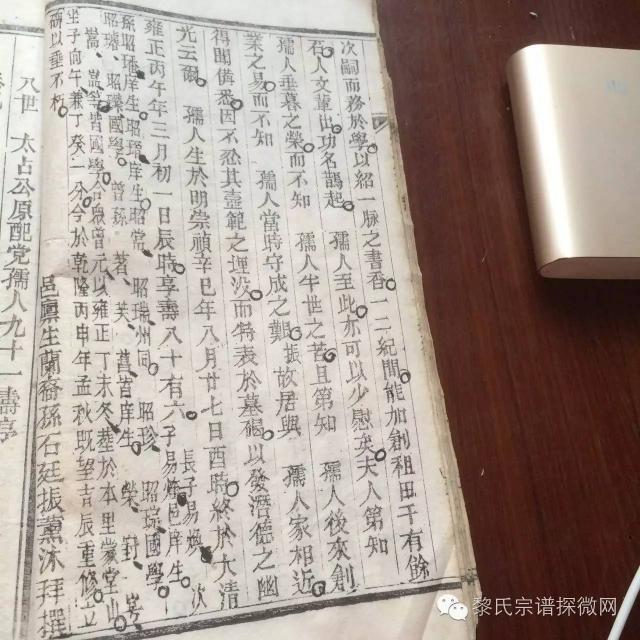 次嗣而務於學以紹一脉之書香一二紀間能加創祖田千有餘
石人文輩出功名鵲起 孺人至此亦可以少慰矣夫人第知
孺人垂暮之榮而不知 孺人半世之苦且第知 孺人後來創
業之易而不知 孺人當時守成之艱振故居與 孺人家相近
得聞俱悉因不忍其壼範之湮沒而特表於墓碣以發潛德之幽
光云爾 孺人生於明崇禎辛巳年八月廿七日酉時終於大清
雍正丙午年三月初一日辰時享壽八十有六子易 長子易煥 次
孫昭 庠生昭 庠生昭常 昭瑞州同 昭珍 昭 國學
昭 昭 國學 曾孫 著 庠生 榮 對 常
嵩 皆國學 元以雍正丁未冬葬於本里 堂山
坐子向午兼丁癸一分今於乾隆丙申年孟秋既望吉辰重修立
碑以垂不朽
呂 生蘭裔孫石廷振薰沐拜撰
八世 太占公原配党孺人九十一壽序
黎氏宗谱探微网